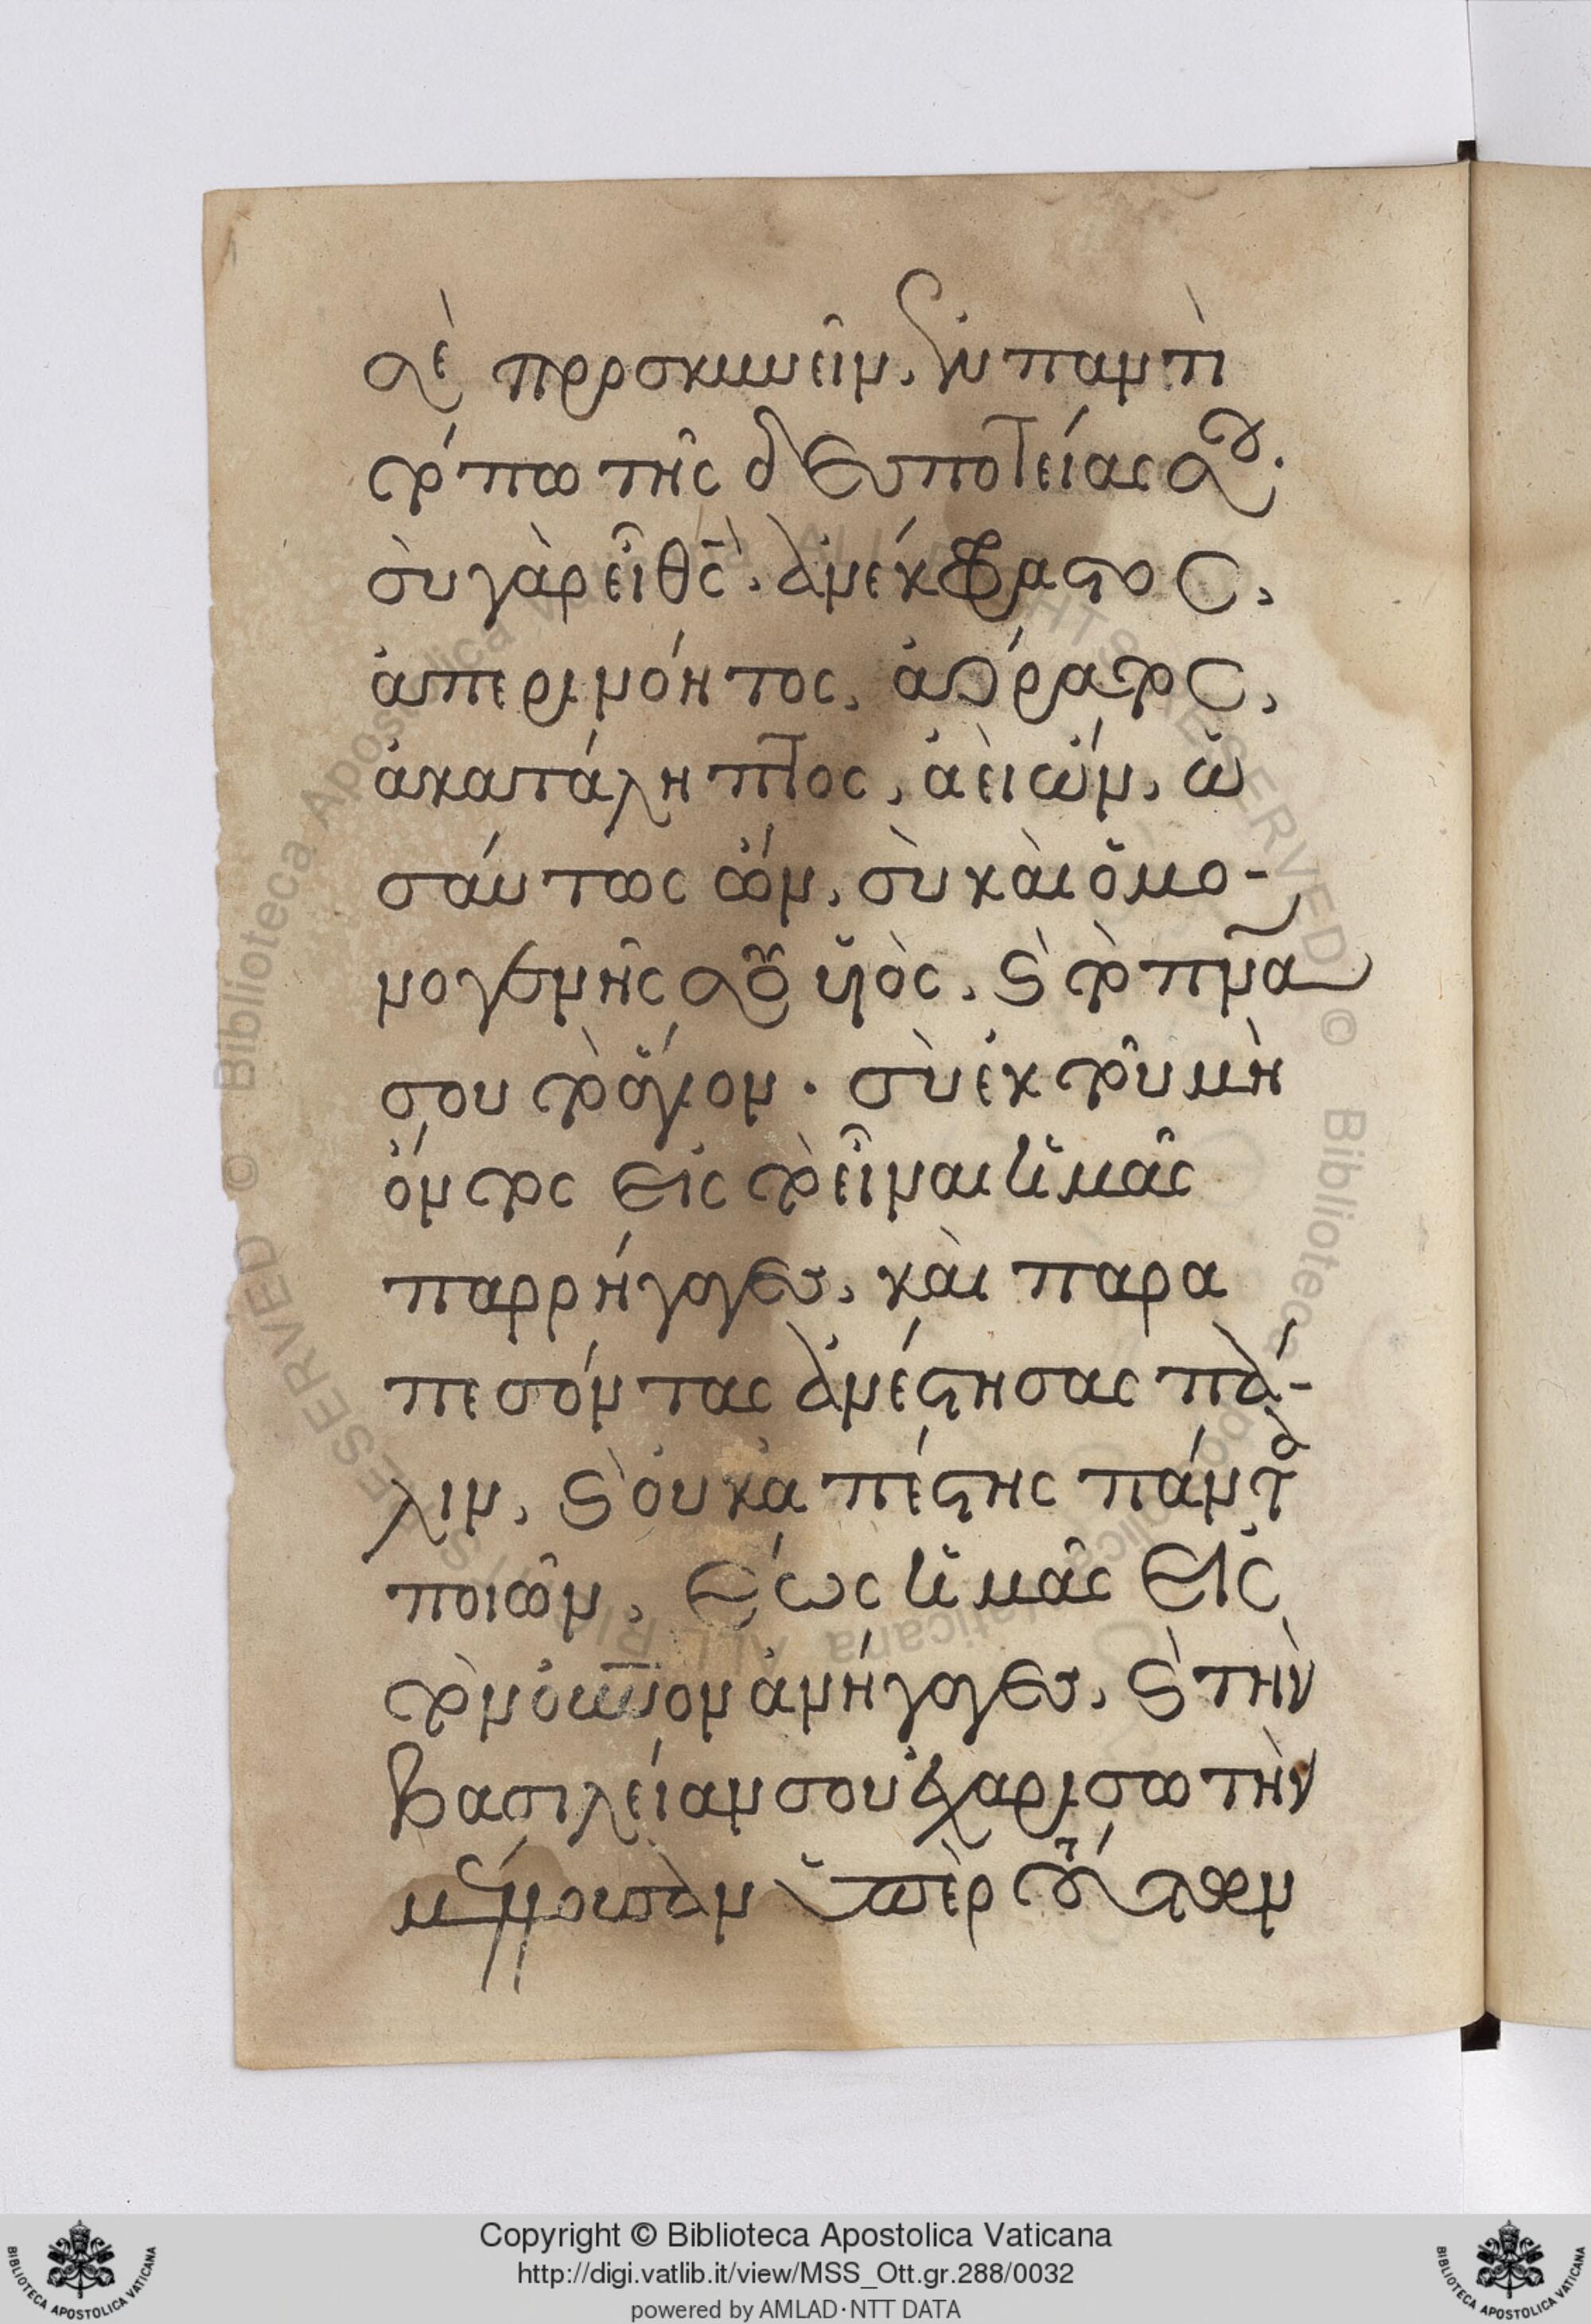 σὲ προσκυνεῖν. ἐν παντὶ
τόπω τῆς δεσποτείας σου.
σὺ γὰρ εἶ θς̅. ἀνέκφραστος,
ἀπερινόητος, ἀόρατος,
ἀκατάληπτος, ἀεὶ ὤν, ὡ
σαύτως ὤν, σὺ καὶ ὁ μο-
νογενής σου υἱὸς, καὶ τὸ πνα̅
σου τὸ ἅγιον. σὺ ἐκ τοῦ μὴ
ὄντος εἰς τὸ εἶναι ἡμᾶς
παρρήγαγες, καὶ παρα
πεσόντας ἀνέστησας πά-
λιν, καὶ οὐκ ἀπέστης πάντα
ποιῶν, ἕως ἡμᾶς εἰς
τὸν οὐνον ἀνήγαγες, καὶ τὴν
βασιλείαν σου ἐχαρίσω τὴν
μέλλουσαν ὑπὲρ τούτων
Copyright © Biblioteca Apostolica Vaticana
http://digi.vatlib.it/view/MSS_Ott.gr.288/0032
powered by AMLAD·NTT DATA